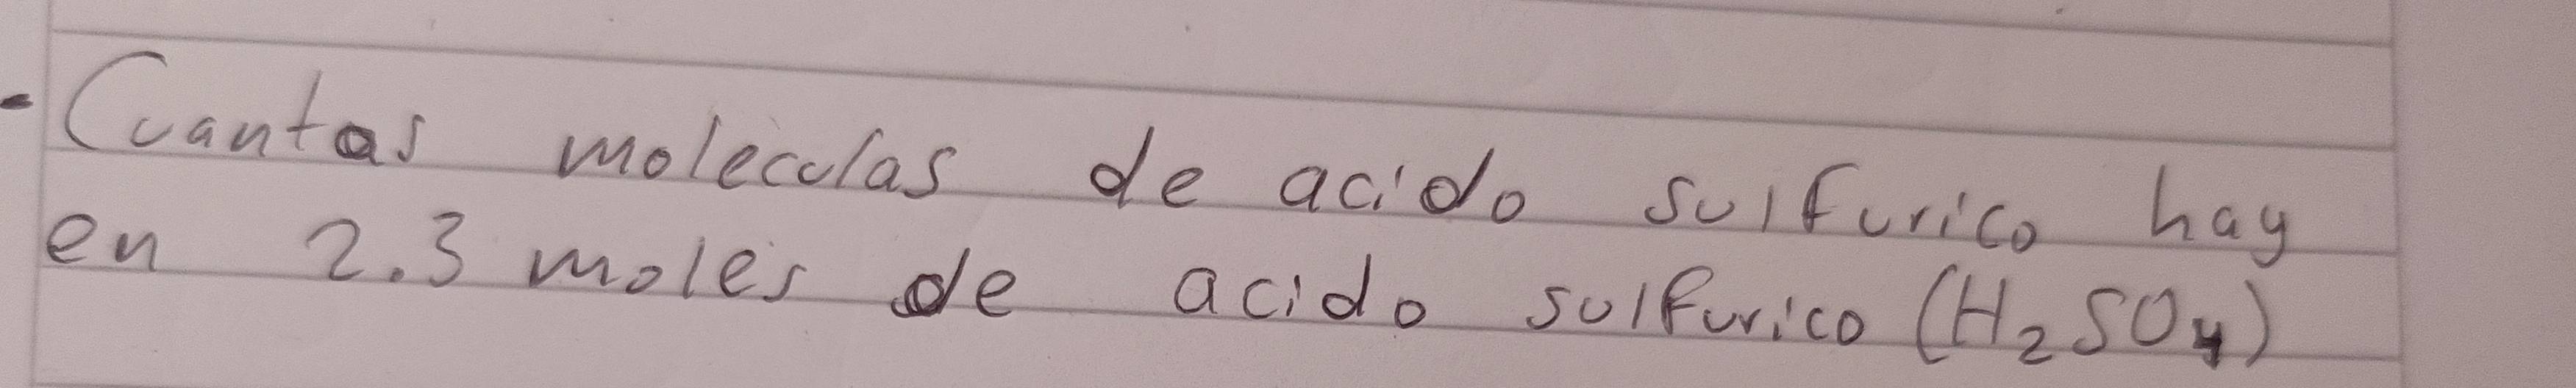 - Cuantas moleculas de acido sulfurico hay
en 2.3 moles de acido sulfurico (H₂SO₄)